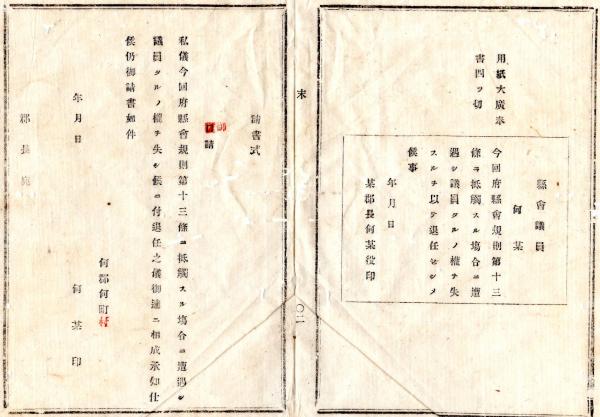 用紙大廣奉
書四ツ切
縣會議員
何某
今回府縣會規則第十三
條ニ抵觸スル塲合ニ遭
遇シ議員タルノ權ヲ失
スルヲ以テ退任セシメ
候事
年月日
某郡長何某役印
末
〇二
請書式
御
請
私儀今回府縣會規則第十三條ニ抵觸スル塲合ニ遭遇シ
議員タルノ權ヲ失シ候ニ付退任之儀御達ニ相成承知仕
候仍御請書如件
何郡何町村
年月日
何某印
郡長宛